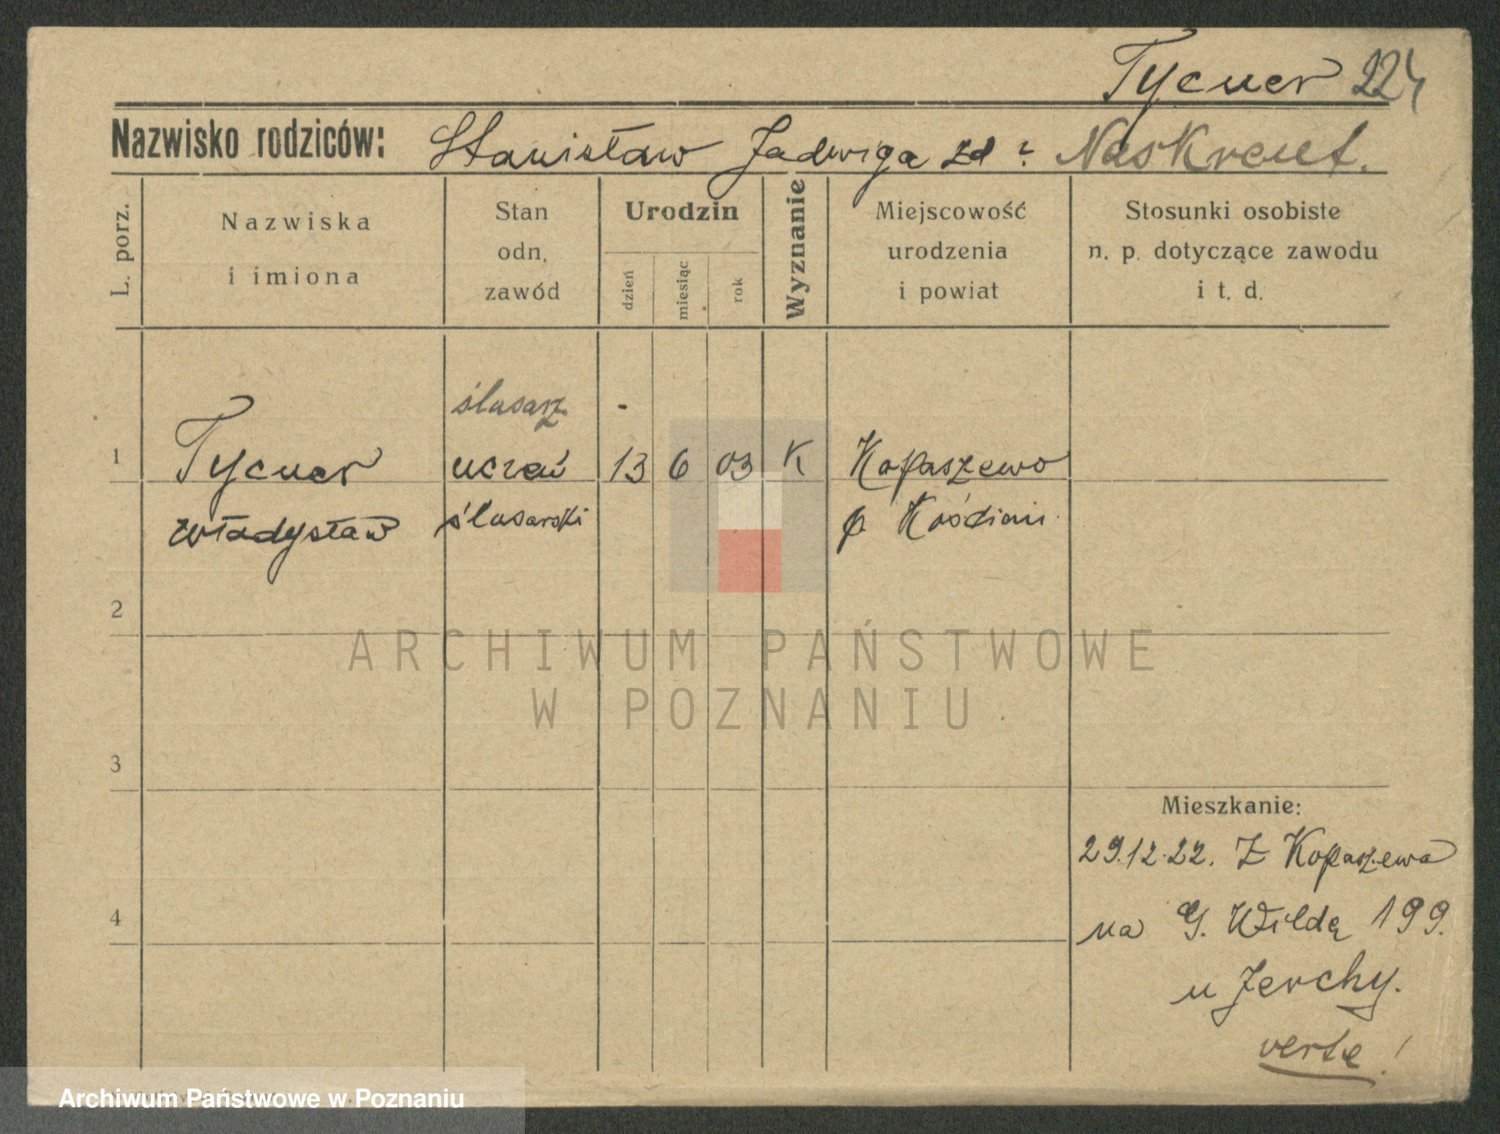 Tycner 224
Nazwisko rodziców: Stanisław Jadwiga zd: Naskrent.
L. porz.
Nazwiska
i imiona
Stan
odn.
zawód
Urodzin
dzień
miesiąc
rok
Wyznanie
Miejscowość
urodzenia
i powiat
Stosunki osobiste
n. p. dotyczące zawodu
i t. d.
ślusarz
1 Tycner uczeń 13 6 03 K Kopaszewo
Władysław ślusarski p Kościan
2
ARCHIWUM PAŃSTWOWE
W POZNANIU
3
Mieszkanie:
29.12.22. Z Kopaszewa
4
na G. Wildę 199.
u Jerchy.
verte!
Archiwum Państwowe w Poznaniu